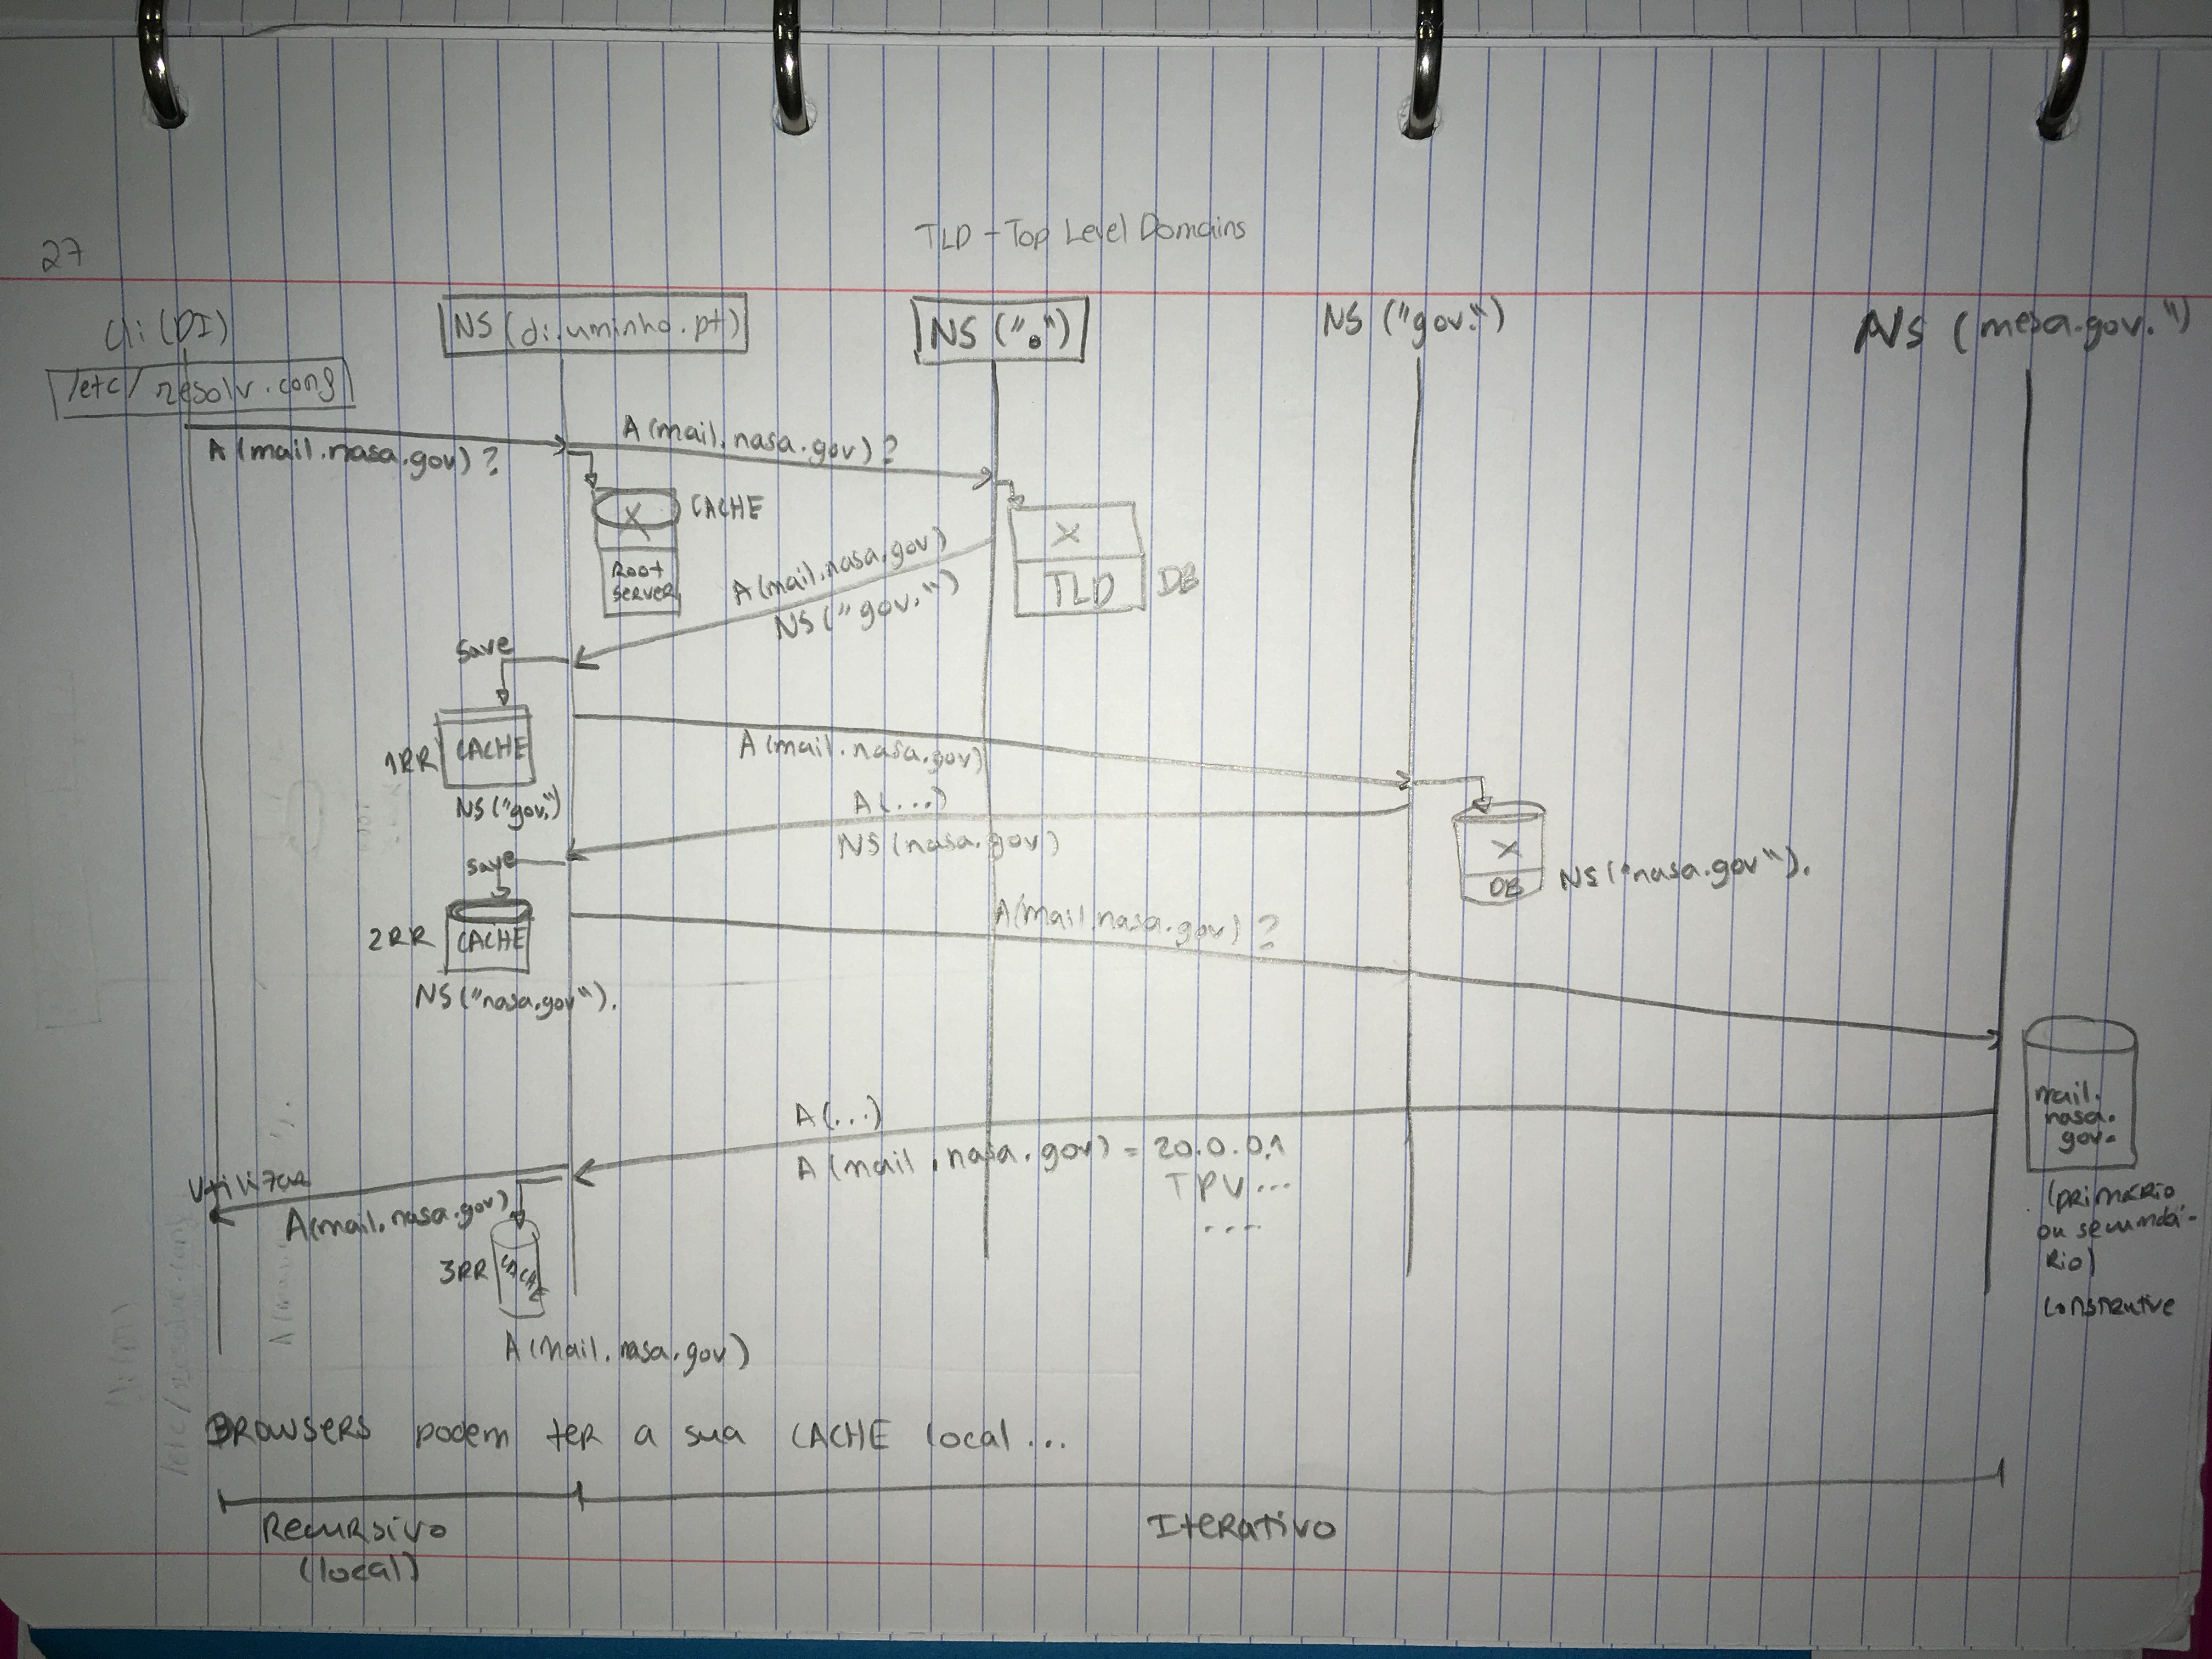 27
TLD - Top Level Domains
Cli (DI)
/etc/resolv.conf
NS (di.uminho.pt)
NS (".")
NS ("gov.")
NS (nasa.gov.")
A (mail.nasa.gov) ?
A (mail.nasa.gov) ?
X
CACHE
Root
Server
X
TLD
DB
A (mail.nasa.gov)
NS ("gov.")
Save
1RR
CACHE
NS ("gov.")
A (mail.nasa.gov)
A (...)
NS (nasa.gov)
X
DB
NS ("nasa.gov").
save
2RR
CACHE
NS ("nasa.gov").
A (mail.nasa.gov) ?
mail.
nasa.
gov.
(primário
ou secundá-
rio)
A (...)
A (mail.nasa.gov) = 20.0.0.1
TPV ...
....
Utilizar
A (mail.nasa.gov)
3RR
CACHE
A (mail.nasa.gov)
Browsers podem ter a sua CACHE local ...
Recursivo
(local)
Iterativo